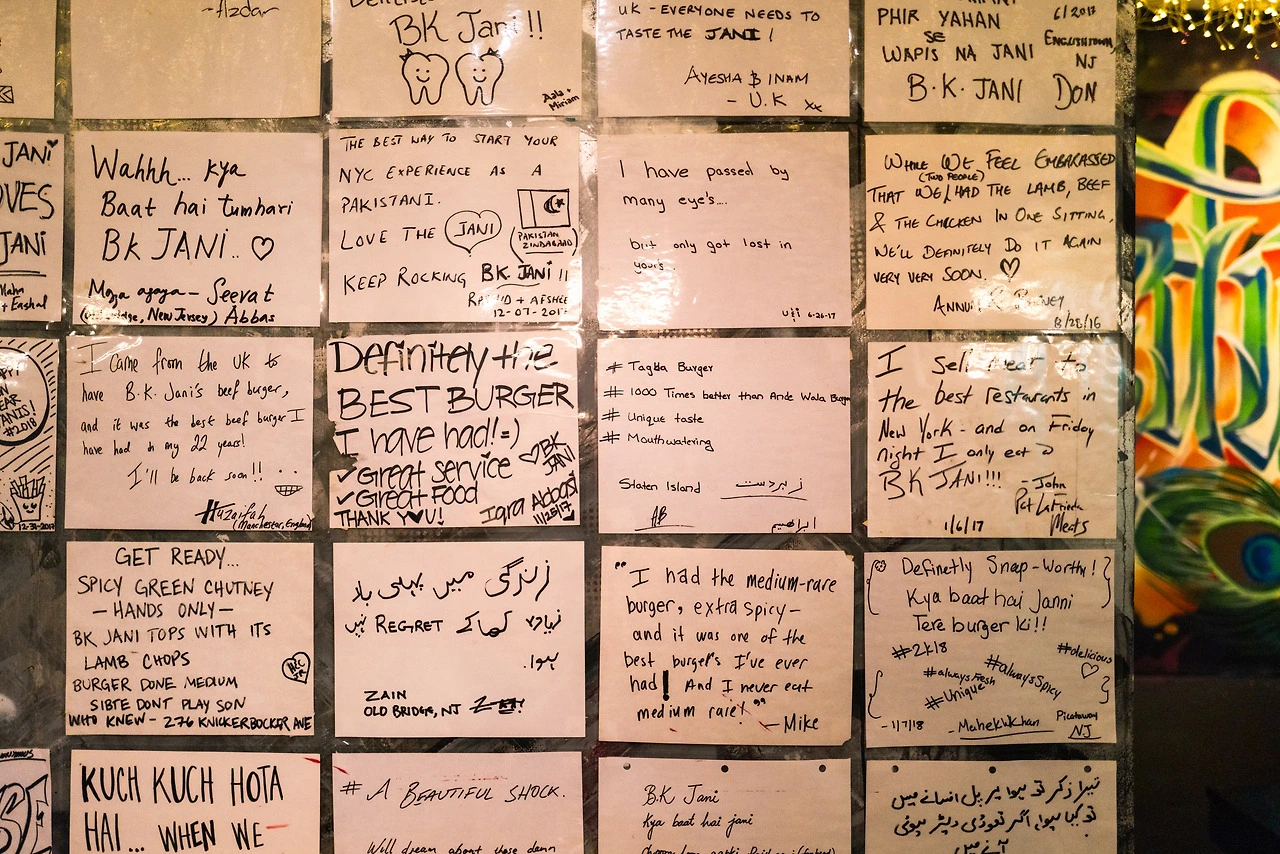 -Azdar
BK Jani !!
Aala +
Miriam
UK - EVERYONE NEEDS TO
TASTE THE JANI !
AYESHA & INAM
- U.K xx
PHIR YAHAN
SE
WAPIS NA JANI
B.K. JANI
6/2017
ENGLISHTOWN,
NJ
DON
JANi
JANI
+ Eashal
Wahhh... kya
Baat hai tumhari
BK JANI.. ♡
Moza agaya - Seerat
New Jersey) Abbas
THE BEST WAY TO START YOUR
NYC EXPERIENCE AS A
PAKISTANI.
LOVE THE JANI
(PAKISTAN
ZINDABAAD)
KEEP ROCKING BK JANI !!
+ AFSHEE
12-07-2017
I have passed by
many eye's....
but only got lost in
yours..
6-26-17
WHILE WE FEEL EMBARASSED
(TWO PEOPLE)
THAT WE HAD THE LAMB, BEEF
& THE CHICKEN IN ONE SITTING,
WE'LL DEFINITELY DO IT AGAIN
VERY VERY SOON. ♡
8/28/16
#2018
12-31-2017
I came from the UK to
have B.K. Jani's beef burger,
and it was the best beef burger I
have had in my 22 years!
I'll be back soon!!
Huzaifah
(Manchester, England)
Definitely the
BEST BURGER
I have had! =)
✓Great service
✓Great Food
THANK Y♥U!
♡BK
JANI
Iqra Abbasi
11/25/17
# Tagda Burger
# 1000 Times better than Ande Wala Burger
# Unique taste
# Mouthwatering
Staten Island زبردست
AB ابراهيم
I sell meat to
the best restaurants in
New York - and on Friday
night I only eat @
BK JANI!!!
- John
Pat LaFrieda
Meats
1/6/17
GET READY...
SPICY GREEN CHUTNEY
- HANDS ONLY -
BK JANI TOPS WITH ITS
LAMB CHOPS
BURGER DONE MEDIUM
SIBTE DONT PLAY SON
WHO KNEW - 276 KNICKERBOCKER AVE
زندگی میں پہلی بار
زیادہ کھا کے REGRET نہیں
ہوا.
ZAIN
OLD BRIDGE, NJ
"I had the medium-rare
burger, extra spicy -
and it was one of the
best burgers I've ever
had! And I never eat
medium rare!"
- Mike
Definetly Snap-Worthy!
Kya baat hai Janni
Tere burger ki!!
#2k18
#delicious
#alwaysFresh
#alwaysSpicy
#Unique
- 1/7/18
- Mahek Khan
Piscataway
NJ
KUCH KUCH HOTA
HAI... WHEN WE
# A BEAUTIFUL SHOCK.
Well dream about these damn
B.K Jani
Kya baat hai jani
تیرا ذکر ہو یا